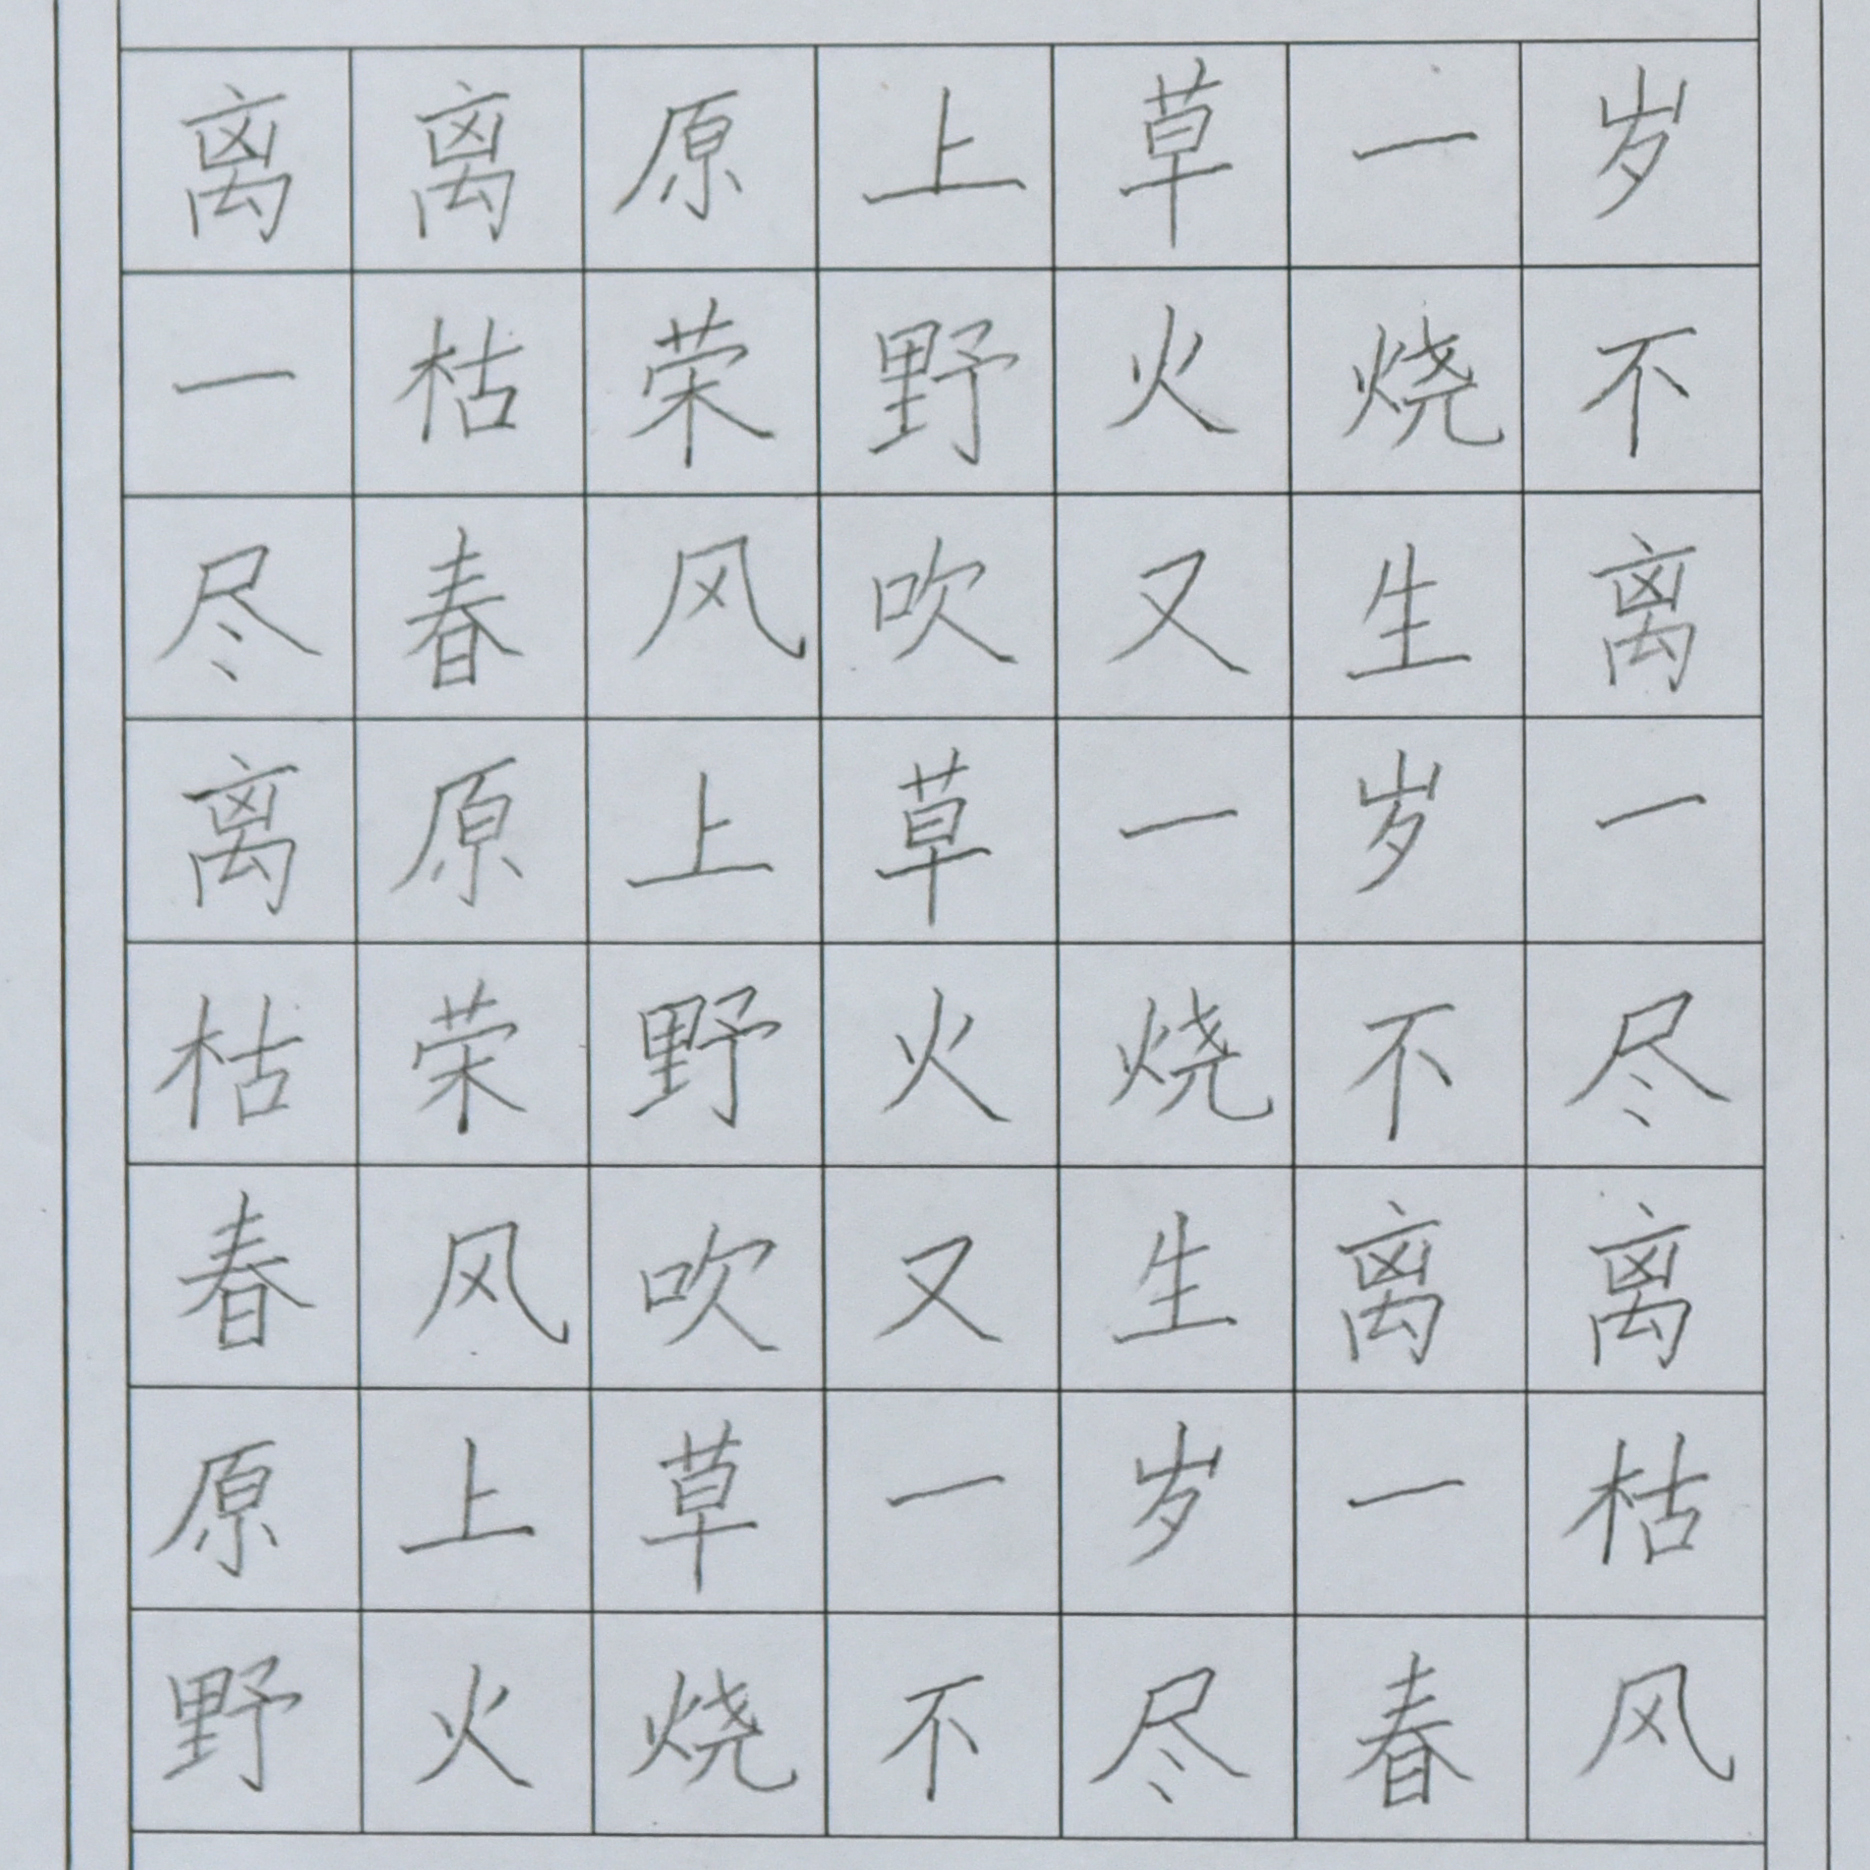 离离原上草一岁
一枯荣野火烧不
尽春风吹又生离
离原上草一岁一
枯荣野火烧不尽
春风吹又生离离
原上草一岁一枯
野火烧不尽春风